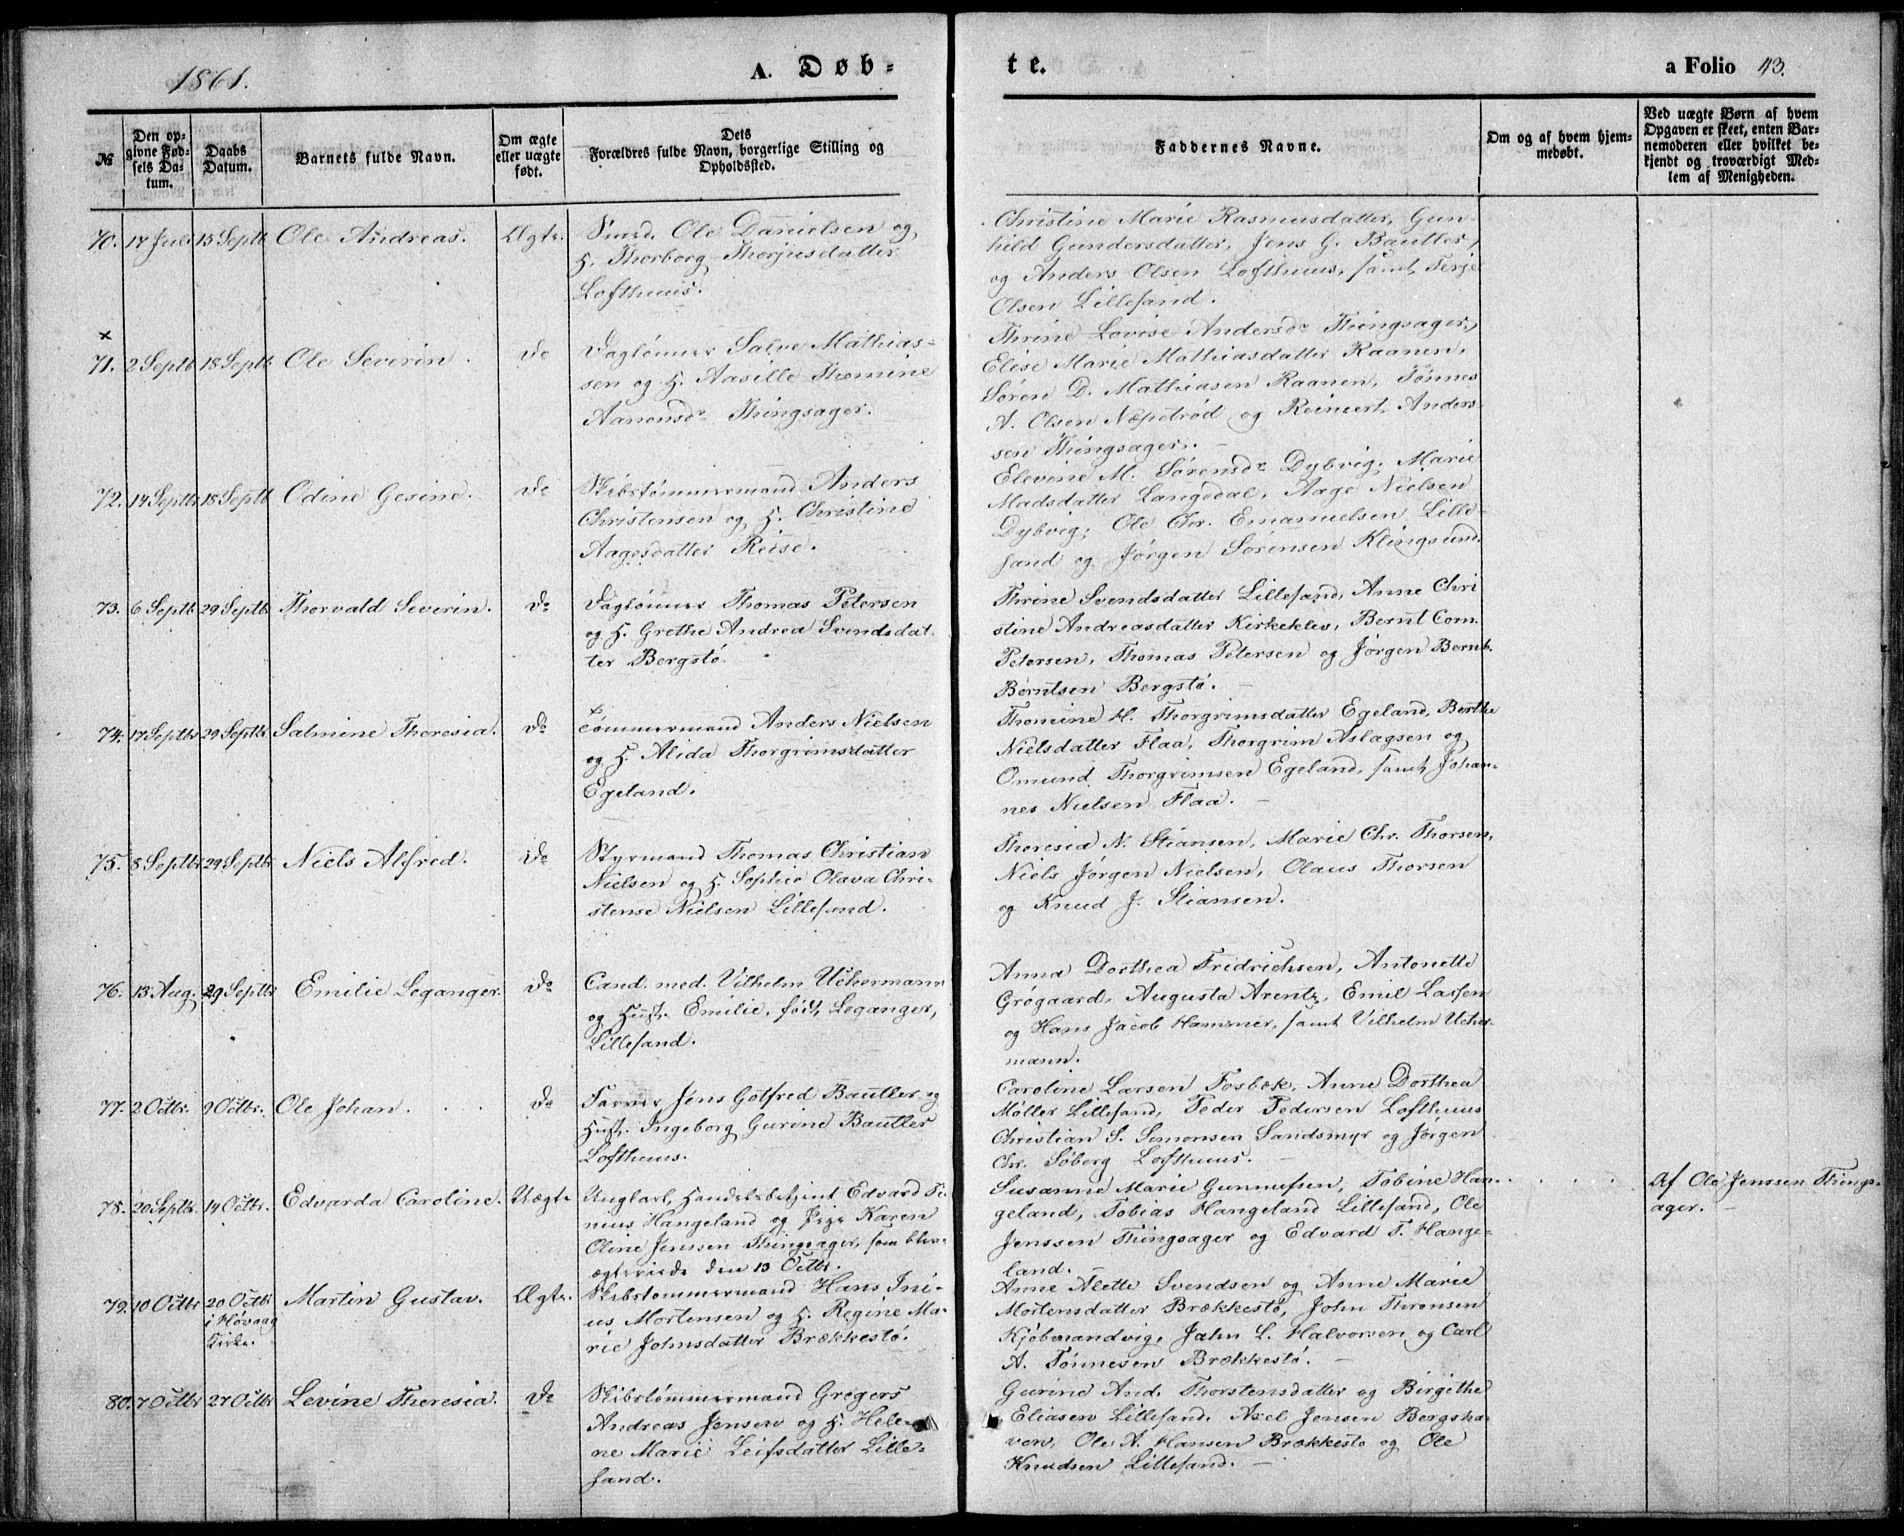 1861.
A. Døb-
te.
a Folio 43.
№
Den op-
givne Fød-
sels Da-
tum.
Daabs
Datum.
Barnets fulde Navn.
Om ægte
eller uægte
født.
Dets
Forældres fulde Navn, borgerlige Stilling og
Opholdssted.
Faddernes Navne.
Om og af hvem hjem-
medøbt.
Ved uægte Børn af hvem
Opgaven er skeet, enten Bar-
nemoderen eller hvilket be-
kjendt og troværdigt Med-
lem af Menigheden.
70. 17 Juli 15 Septb Ole Andreas. Ægte.
Smed Ole Danielsen og
H. Thorborg Thorjusdatter
Lofthuus.
Christine Marie Rasmusdatter, Gun-
hild Gundersdatter, Jens G. Bautler,
og Anders Olsen Lofthuus, samt Terje
Olsen Lillesand.
×
71. 2 Septb 18 Septb Ole Severin. Do
Daglønner Salve Mathias-
sen og H. Aasille Thomine
Aanonsdr Thingsager.
Thrine Lovise Andersdr Thingsager,
Elise Marie Mathiasdatter Raanen,
Søren D. Mathiasen Raanen, Tønnes
A. Olsen Næpetrød og Reinert Anders-
sen Thingsager. –
72. 14 Septbr 18 Septb Odine Gesine. Do
Skibstømmermand Anders
Christensen og H. Christine
Aagesdatter Reise.
Elevine M. Sørensdr Dybvig, Marie
Madsdatter Langedal, Aage Nielsen
Dybvig, Ole Chr. Emanuelsen Lille-
sand og Jørgen Sørensen Klingsund.
73. 6 Septb 29 Septbr Thorvald Severin. Do
Daglønner Thomas Petersen
og H. Grethe Andrea Svendsdat-
ter Bergstø.
Thrine Svendsdatter Lillesand, Anne Chri
stine Andreasdatter Kirkeklev, Bernt Corn.
Petersen, Thomas Petersen og Jørgen Bernt
Berntsen Bergstø. –
74. 17 Septbr 29 Septbr Salmine Theresia. Do
×
Tømmermand Anders Nielsen
og H. Alida Thorgrimsdatter
Egeland.
Thomine H. Thorgrimsdatter Egeland, Berthe
Nielsdatter Flaa, Thorgrim Aslagsen og
Omund Thorgrimsen Egeland, samt Johan-
nes Nielsen Flaa. –
75. 8 Septbr 29 Septbr Niels Alfred. Do
Styrmand Thomas Christian
Nielsen og H. Sophie Olava Chri-
stense Nielsen Lillesand.
Theresia N. Stiansen, Marie Chr. Thorsen,
Niels Jørgen Nielsen, Olaus Thorsen
og Knud J. Stiansen.
76. 13 Aug. 29 Septbr Emilie Leganger. Do
Cand. med. Vilhelm Uchermann
og Hustr. Emilie, født Leganger,
Lillesand.
Anna Dorthea Fridrichsen, Antonette
Grøgaard, Augusta Arentz, Emil Larsen
og Hans Jacob Hammer, samt Vilhelm Ucher-
mann.
77. 2 Octbr. 9 Octbr. Ole Johan. Do
Farver Jens Gotfred Bautler og
Hustr. Ingeborg Gurine Bautler
Lofthuus.
Caroline Larsen Fosbæk, Anne Dorthea
Møller Lillesand, Peder Pedersen Lofthuus
Christian S. Simonsen Sandsmyr og Jørgen
Chr. Søberg Lofthuus. –
78. 20 Septb. 14 Octbr. Edvarda Caroline. Uægte
Ungkarl, Handelsbetjent Edvard Ti-
nius Hangeland og Pige Karen
Oline Jenssen Thingsager, som blev
ægteviede den 13 Octbr.
Susanne Marie Gunnufsen, Tobine Han-
geland, Tobias Hangeland Lillesand, Ole
Jenssen Thingsager og Edvard T. Hange-
land. –
Af Ole Jenssen Things-
ager. –
79. 10 Octbr 20 Octbr
i Høvaag
Kirke.
Martin Gustav. Ægte.
Skibstømmermand Hans Ini-
us Mortensen og H. Regine Ma-
rie Johnsdatter Brækkestø.
Anne Alette Svendsen og Anne Marie
Mortensdatter Brækkestø, John Thronsen
Kjøbmandvig, Jahn L. Halvorsen og Carl
A. Tønnesen Brækkestø. –
80. 7 Octbr 27 Octbr Levine Theresia. Do
Skibstømmermand Gregers
Andreas Jensen og H. Hele-
ne Marie Leifsdatter Lille-
sand.
Gurine And. Thorstensdatter og Birgithe
Eliasen Lillesand, Axel Jensen Bergsha-
ven, Ole A. Hansen Brækkestø og Ole
Knudsen Lillesand. –